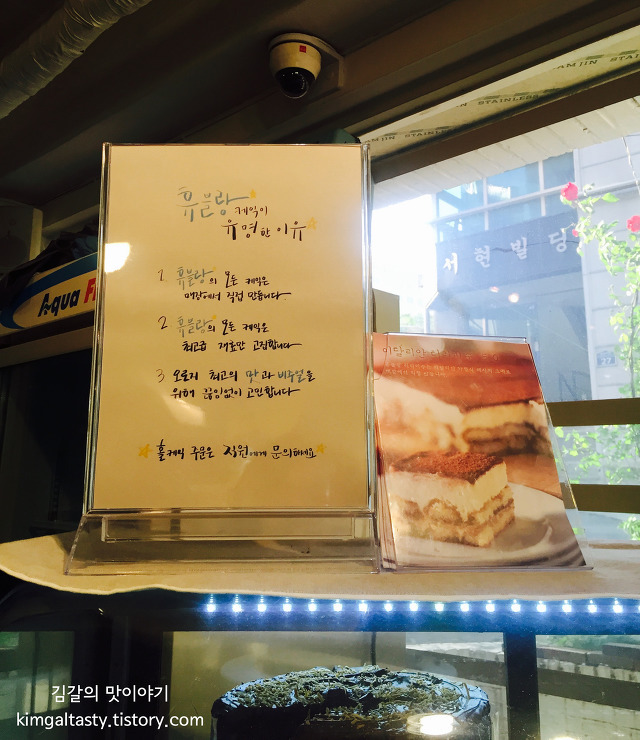 JIN STAINLESS
휴블랑 케익이
유명한 이유
서현빌딩
Aqua F
1 휴블랑의 모든 케익은
매장에서 직접 만듭니다
2 휴블랑의 모든 케익은
최고급 재료만 고집합니다
3 오로지 최고의 맛과 비주얼을
위해 끊임없이 고민합니다
홀케익 주문은 직원에게 문의하세요
이탈리안
김갈의 맛이야기
kimgaltasty.tistory.com